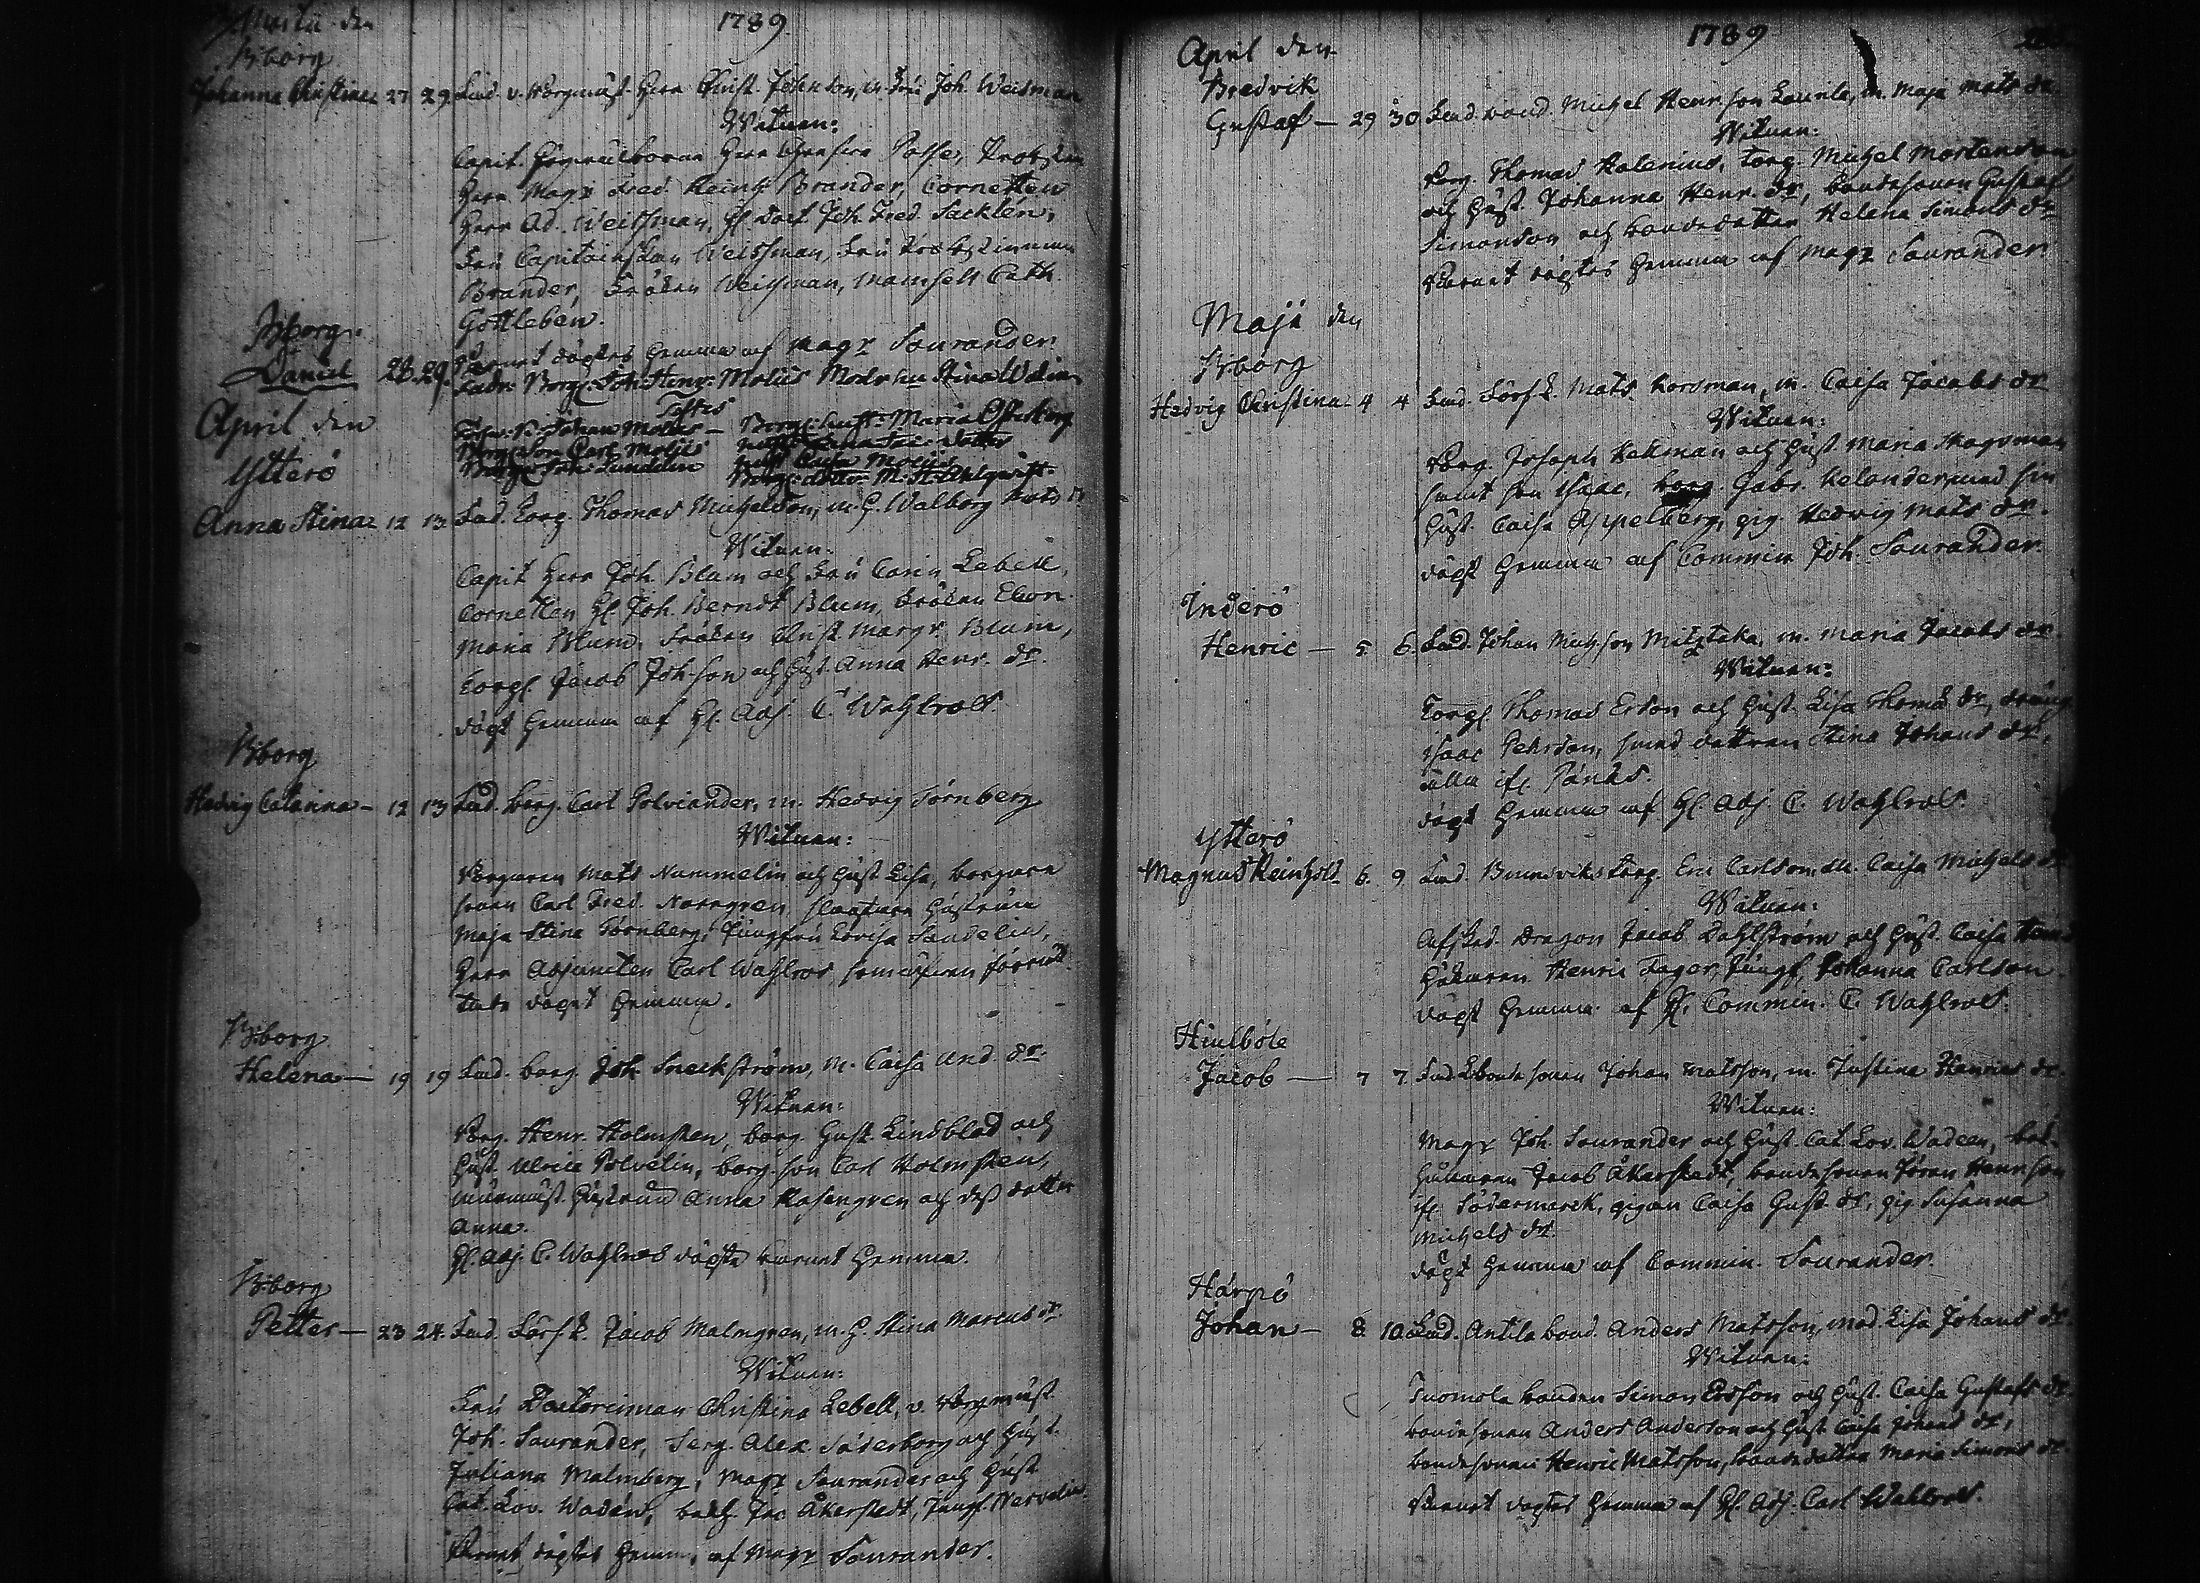 Martii den
1789
Bborg
Johanna Christina 27 29 Fad. v. Borgmäst. Herr Christ. Johnson, m. Fru Joh. Weisman
Witnen:
Capit. Herr Posse, Probsten
Herr Mag:r Fred. Heinr. Brander, Cornetten
Herr Ad. Weisman, H. Doct. Joh. Fred. Sacklén,
Fru Capitainskan Weisman, Fru Probstinnan
Brander, Fröken Weisman, Mamsell Cath.
Gottleben.
Barnet döptes hemma af Mag:r Sourander.
Bborg.
Daniel 28. 29. Fadr. Borg. Joh. Henr. Moliis Modren Stina Udein
Testes
Johan Molus — Borg. hust. Maria Österberg
Borg. Son Carl Moliis
Borg. Joh. Lundelin
Borg. dottr. M. St. Ahlqvist.
April den
Ytterö
Anna Stina 12 13 Fad. Torp. Thomas Michelson, m. H. Walborg Mats dr
Witnen.
Capit Herr Joh. Blum och Fru Carin Lebell,
Cornetten H. Joh. Berndt Blum, Fröken Eleon.
Maria Blum, Fröken Christ. Margr. Blum,
Torp. Jacob Joh.son och hust. Anna Henr. dr.
döpt hemma af H. Adj. C. Wahlroos
Bborg
Hedvig Catarina — 12 13 Fad. borg. Carl Polviander, m. Hedvig Törnberg
Witnen:
Borgaren Mats Nummelin och hust. Lisa, borgare
sonen Carl Fred. Norngren, slagtare hustrun
Maja Stina Törnberg, Jungfru Lovisa Sandelin,
Herr Adjuncten Carl Wahlroos, som äfven förrät-
tade döpet hemma.
Bborg
Helena — 19 19 Fad. borg. Joh. Sneckström, m. Caisa And. dr.
Witnen:
Borg. Henr. Holmsten, borg. Gust. Lindblad och
hust. Ulrica Polvelin, borg. son Carl Holmsten,
murmäst. hustrun Anna Rosengren och dess dotter
Anna.
H. Adj. C. Wahlroos döpte barnet hemma.
Bborg
Petter — 23 24. Fad. Borf k. Jacob Malmgren, m. H. Stina Marcus dr
Witnen:
Fru Doctorinnan Christina Lebell, v. Borgmäst.
Joh. Sourander, Serg. Alex. Söderborg och hust.
Juliana Malmberg, Mag:r Sourander och hust.
Cat. Lov. Wadén, Jac Åkerstedt, Jungf. Nervelin.
Barnet döptes hemma, af Mag:r Sourander.
April den
1789
Bredvik
Gustaf — 29 30 Fad. bond. Michel Henr.son Laurila, m. Maja Mats dr.
Witnen:
Borg. Thomas Kalenius, torp. Michel Mortenson
och hust. Johanna Henr. dr, bondesonen Gustaf
Simonson och bondedotter Helena Simons dr
Barnet döptes hemma af Mag:r Sourander.
Maji den
Bborg
Hedvig Christina 4 4 Fad. Borf k. Mats Korsman, m. Caisa Jacobs dr
Witnen:
Borg. Joseph Hakman och hust. Maria Skogsman
samt son Isaac, borg. Gabr. Kelander, med sin
hust. Caisa Appelberg, pig. Hedvig Mats dr.
döpt hemma af Commin. Joh. Sourander.
Inderö
Henric — 5 6. Fad. Johan Mich.son, m. Maria Jacobs dr.
Witnen:
Torp. Thomas Erson och hust. Lisa Thomæ dr, dräng.
Isaac Pehrson, smed dottren Stina Johans dr,
alla if. Pänäs.
döpt hemma af H. Adj. C. Wahlroos.
Ytterö
Magnus Reinhold 6. 9 Fad. Brunsviks torp. Eric Carlson, m. Caisa Michels dr
Witnen:
Afsked. Dragon Jacob Dahlström och hust. Caisa Hans
Henric Fager, Jungf. Johanna Carlson.
döpt hemma af H. Commin. C. Wahlroos.
Hiulböle
Jacob — 7 7 Fad. bondesonen Johan Matsson, m. Justina Henrics dr.
Witnen:
Mag:r Joh. Sourander och hust. Cat. Lov. Wadeen, bok-
hållaren Jacob Åkerstedt, bondesonen Jöran Henr.son
if. Södermarck, pigan Caisa Gust. dr, pig. Susanna
Michels dr.
döpt hemma af Commin. Sourander.
Harpö
Johan — 8 10 Fad. Antila bond. Anders Matsson, mod. Lisa Johans dr.
Witnen:
Tuomola bonden Simon Ersson och hust. Caisa Gustafs dr.
bondesonen Anders Anderson och hust. Caisa Johans dr,
bondesonen Henric Matsson, bondedotter Maria Simons dr.
Barnet döptes hemma af H. Adj. Carl Wahlroos.